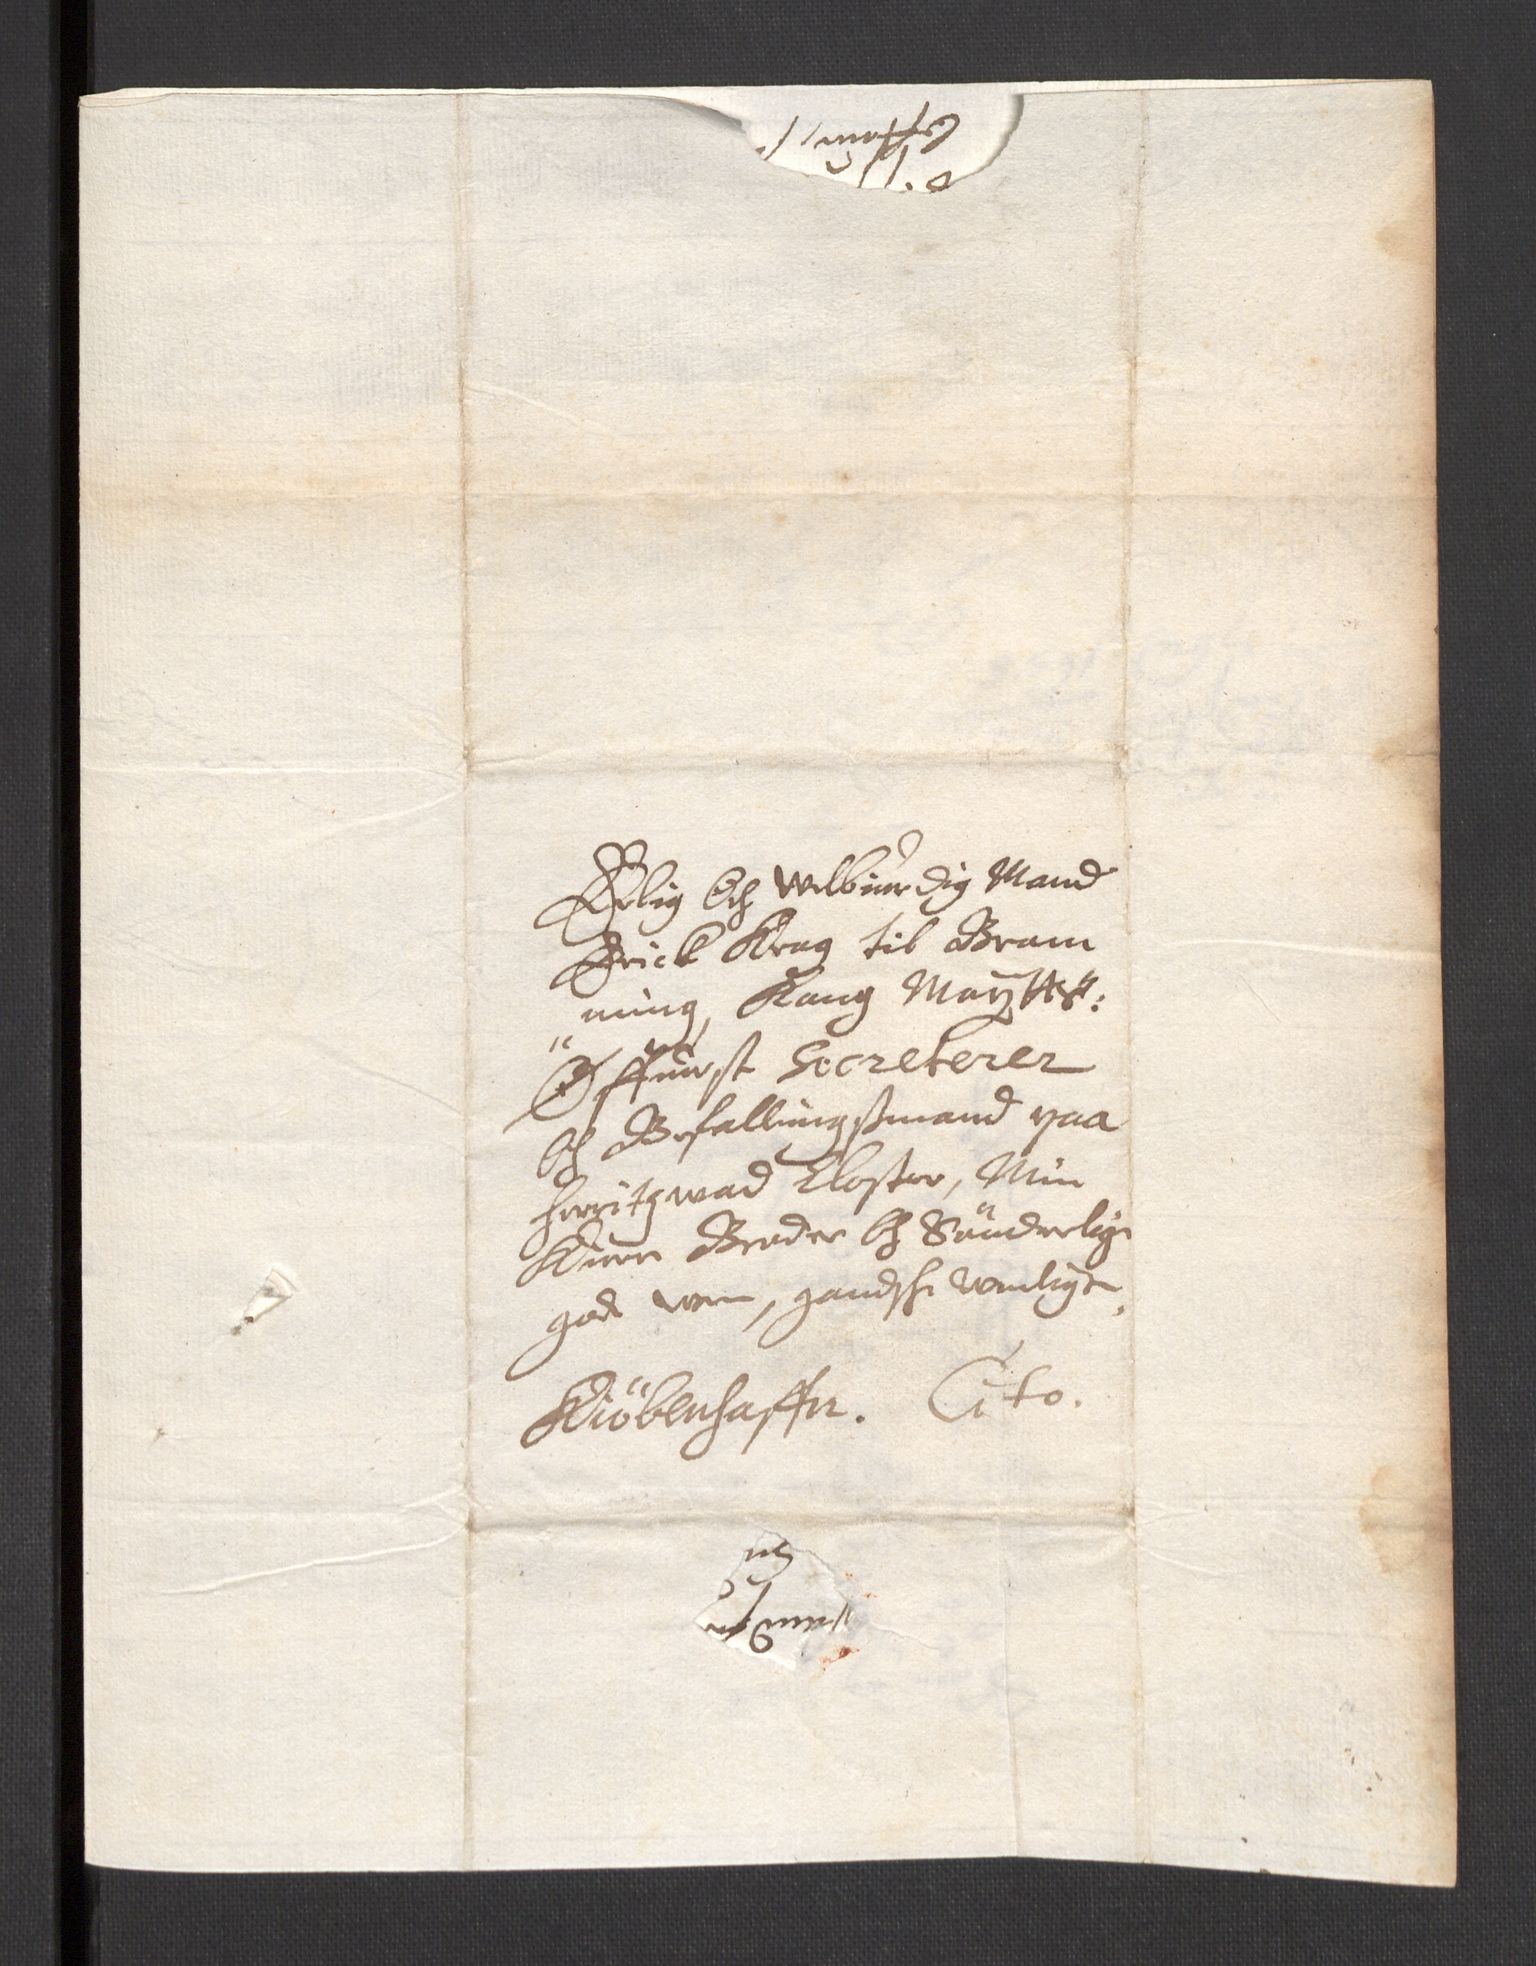 Erlig Och Welbiurdig Mand
Erick Krag til Bram
ning, Kong Maÿtts:
Öffuerst Secreterer
och Befallingsmand paa
Herritzwad Closter, Min
Kiere Broder och Sönderlige
gode wen, gandske wenligen.
Kiöbenhaffn. Cito.